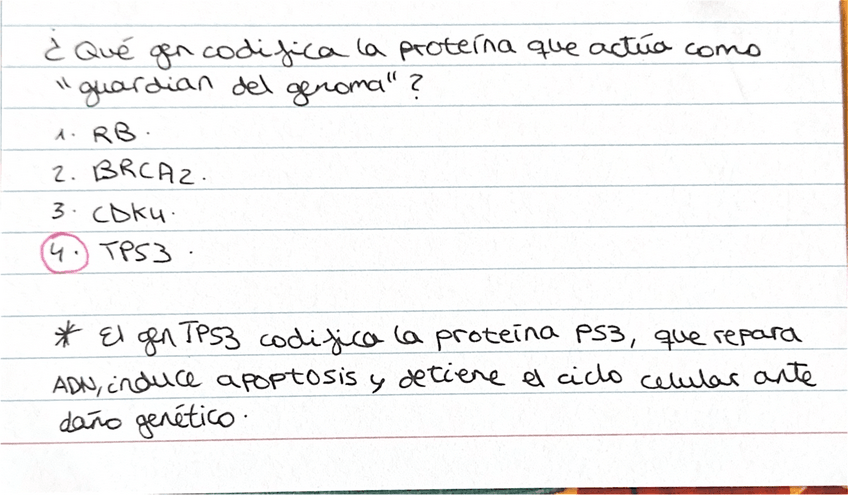 ¿Qué gen codifica la proteína que actúa como
"guardian del genoma"?
1. RB.
2. BRCA2.
3. CDK4.
4. TP53.
* El gen TP53 codifica la proteína P53, que repara
ADN, induce apoptosis y detiene el ciclo celular ante
daño genético.